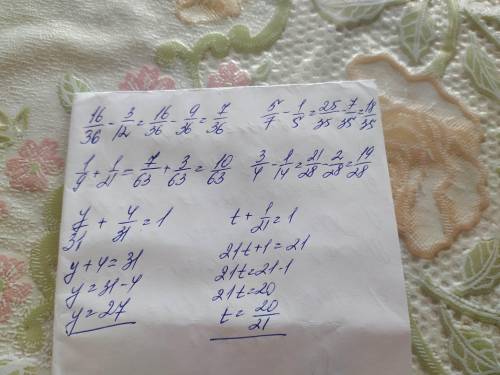 16/36 - 3/12 = 16/36 - 9/36 = 7/36
5/7 - 1/5 = 25/35 - 7/35 = 18/35
1/9 + 1/21 = 7/63 + 3/63 = 10/63
3/4 - 1/14 = 21/28 - 2/28 = 19/28
y/31 + 4/31 = 1
y+4=31
y=31-4
y=27
t + 1/21 = 1
21t+1=21
21t=21-1
21t=20
t= 20/21